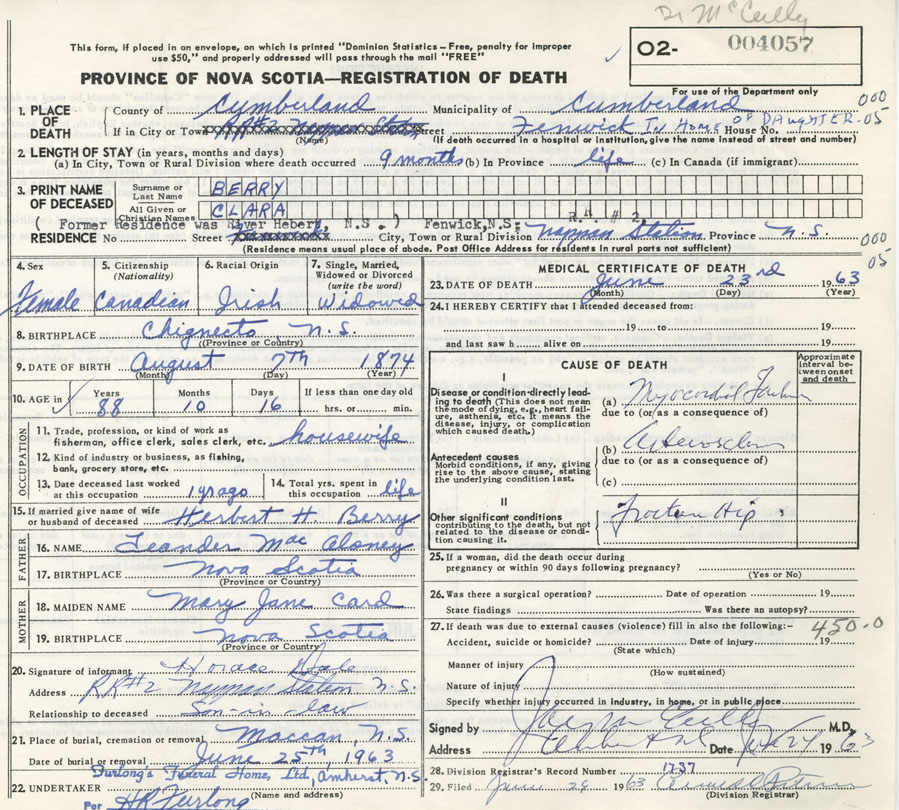 Dr McCully
This form, if placed in an envelope, on which is printed "Dominion Statistics – Free, penalty for improper
use $50," and properly addressed will pass through the mail "FREE"
O2- 004057
PROVINCE OF NOVA SCOTIA—REGISTRATION OF DEATH
For use of the Department only
000
05
1. PLACE OF DEATH
County of Cumberland Municipality of Cumberland
If in City or Town Street Fenwick In Home of Daughter House No.
(Name) (If death occurred in a hospital or institution, give the name instead of street and number)
2. LENGTH OF STAY (in years, months and days)
(a) In City, Town or Rural Division where death occurred 9 months (b) In Province life (c) In Canada (if immigrant)
3. PRINT NAME OF DECEASED
Surname or Last Name BERRY
All Given or Christian Names CLARA
( Former Residence was River Hebert, N.S. ) Fenwick, N.S. R.R. # 2,
RESIDENCE No Street City, Town or Rural Division Nappan Station Province N.S.
(Residence means usual place of abode. Post Office Address for residents in rural parts not sufficient)
000
05
4. Sex 5. Citizenship (Nationality) 6. Racial Origin 7. Single, Married, Widowed or Divorced (write the word)
Female Canadian Irish Widowed
8. BIRTHPLACE Chignecto N.S.
(Province or Country)
9. DATE OF BIRTH August 7th 1874
(Month) (Day) (Year)
10. AGE in Years Months Days If less than one day old
88 10 16 hrs. or min.
OCCUPATION
11. Trade, profession, or kind of work as
fisherman, office clerk, sales clerk, etc. housewife
12. Kind of industry or business, as fishing,
bank, grocery store, etc.
13. Date deceased last worked at this occupation 1 yr ago 14. Total yrs. spent in this occupation life
15. If married give name of wife
or husband of deceased Herbert H. Berry
FATHER
16. NAME Leander Mac Aloney
17. BIRTHPLACE Nova Scotia
(Province or Country)
MOTHER
18. MAIDEN NAME Mary Jane Card
19. BIRTHPLACE Nova Scotia
(Province or Country)
20. Signature of informant Horace
Address RR#2 Nappan Station N.S.
Relationship to deceased Son-in-law
21. Place of burial, cremation or removal Maccan N.S.
Date of burial or removal June 25th 1963
Furlong's Funeral Home, Ltd, Amherst, N.S.
22. UNDERTAKER (Name and address)
Per HR Furlong
MEDICAL CERTIFICATE OF DEATH
23. DATE OF DEATH June 23rd 1963
(Month) (Day) (Year)
24. I HEREBY CERTIFY that I attended deceased from:
19 to 19
and last saw h alive on 19
CAUSE OF DEATH
Approximate interval between onset and death
I
Disease or condition directly leading to death (This does not mean the mode of dying, e.g., heart failure, asthenia, etc. It means the disease, injury, or complication which caused death.)
(a) Myocardial Failure
due to (or as a consequence of)
Antecedent causes
Morbid conditions, if any, giving rise to the above cause, stating the underlying condition last.
(b)
due to (or as a consequence of)
(c)
II
Other significant conditions
contributing to the death, but not related to the disease or condition causing it.
Hip
25. If a woman, did the death occur during
pregnancy or within 90 days following pregnancy?
(Yes or No)
26. Was there a surgical operation? Date of operation 19
State findings Was there an autopsy?
27. If death was due to external causes (violence) fill in also the following:–
450-0
Accident, suicide or homicide? Date of injury 19
(State which)
Manner of injury
(How sustained)
Nature of injury
Specify whether injury occurred in industry, in home, or in public place
Signed by M.D.
Address Date 24 1963
28. Division Registrar's Record Number 1737
29. Filed June 1963
(Division Registrar)